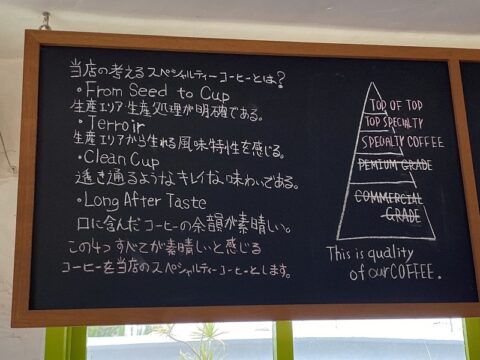 当店の考えるスペシャルティーコーヒーとは?
・From Seed to Cup
生産エリア 生産処理が明確である。
・Terroir
生産エリアから生れる風味特性を感じる。
・Clean Cup
透き通るようなキレイな味わいである。
・Long After Taste
口に含んだコーヒーの余韻が素晴しい。
この4つすべてが素晴しいと感じる
コーヒーを当店のスペシャルティーコーヒーとします。
TOP OF TOP
TOP SPECIALTY
SPECIALTY COFFEE
PEMIUM GRADE
COMMERCIAL
GRADE
This is quality
of our COFFEE.